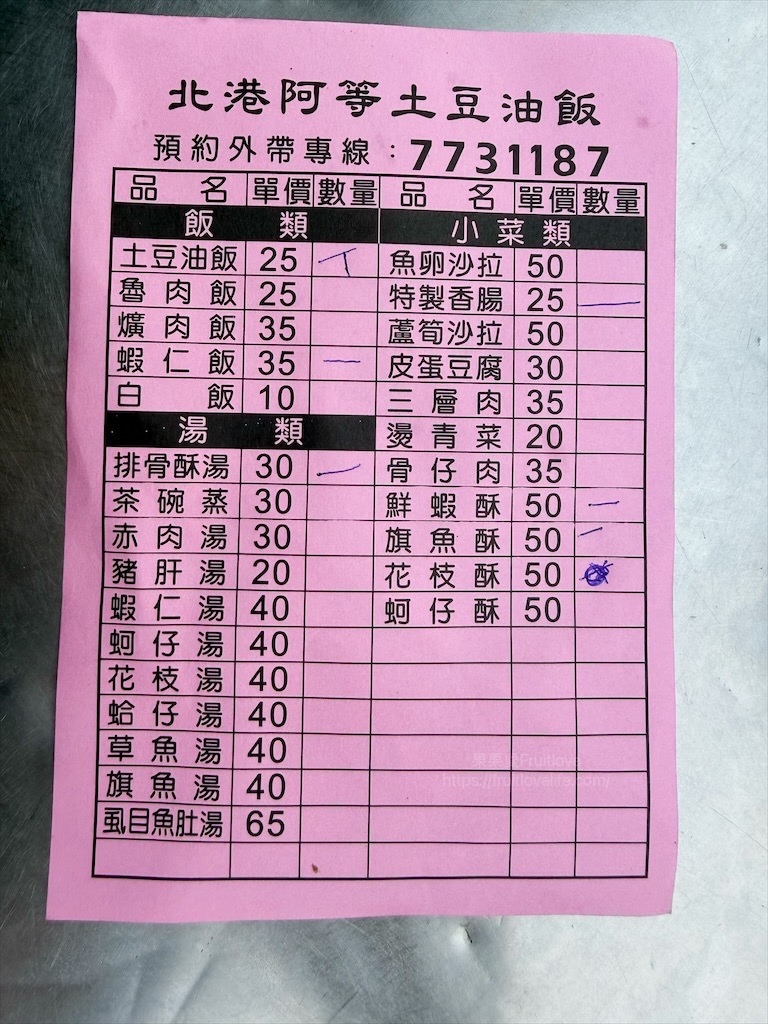 北港阿等土豆油飯
預約外帶專線：7731187
品名 單價 數量 品名 單價 數量
飯類 小菜類
土豆油飯 25 丅 魚卵沙拉 50
魯肉飯 25 特製香腸 25 一
爌肉飯 35 蘆筍沙拉 50
蝦仁飯 35 一 皮蛋豆腐 30
白飯 10 三層肉 35
湯類 燙青菜 20
排骨酥湯 30 一 骨仔肉 35
茶碗蒸 30 鮮蝦酥 50 一
赤肉湯 30 旗魚酥 50 一
豬肝湯 20 花枝酥 50
蝦仁湯 40 蚵仔酥 50
蚵仔湯 40
花枝湯 40
蛤仔湯 40
草魚湯 40
旗魚湯 40
虱目魚肚湯 65
https://fruitlovelife.com/